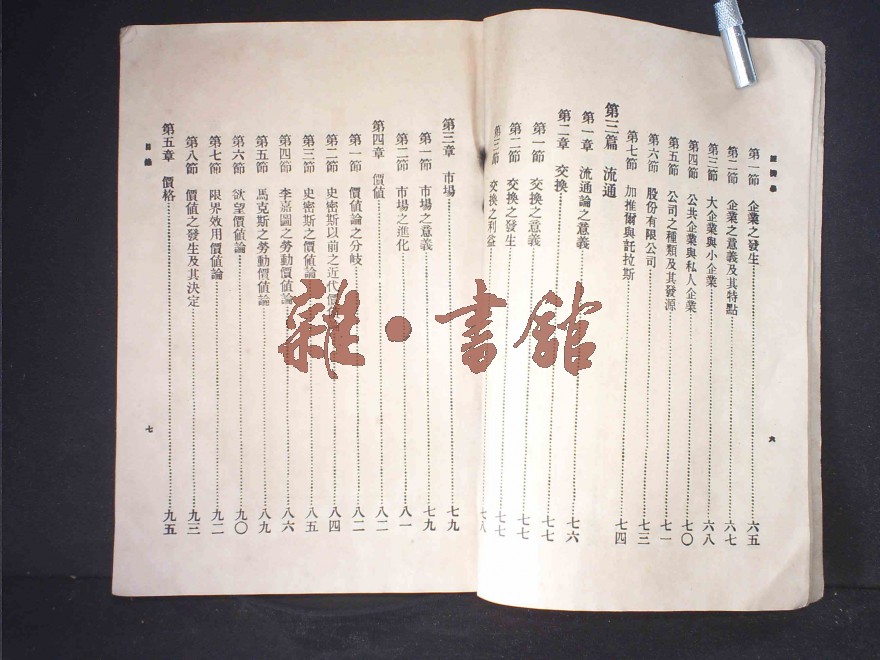 經濟學
第一節 企業之發生……六五
第二節 企業之意義及其特點……六七
第三節 大企業與小企業……六八
第四節 公共企業與私人企業……七〇
第五節 公司之種類及其發源……七一
第六節 股份有限公司……七三
第七節 加推爾與託拉斯……七四
第三篇 流通
第一章 流通論之意義……七六
第二章 交換……七七
第一節 交換之意義……七七
第二節 交換之發生……七七
第三節 交換之利益……七八
六
第三章 市場……七九
第一節 市場之意義……七九
第二節 市場之進化……八一
第四章 價值……八二
第一節 價值論之分岐……八二
第二節 史密斯以前之近代價……八四
第三節 史密斯之價值論……八五
第四節 李嘉圖之勞動價值論……八六
第五節 馬克斯之勞動價值論……八九
第六節 欲望價值論……九〇
第七節 限界效用價值論……九二
第八節 價值之發生及其決定……九三
第五章 價格……九五
目錄
七
雜·書館